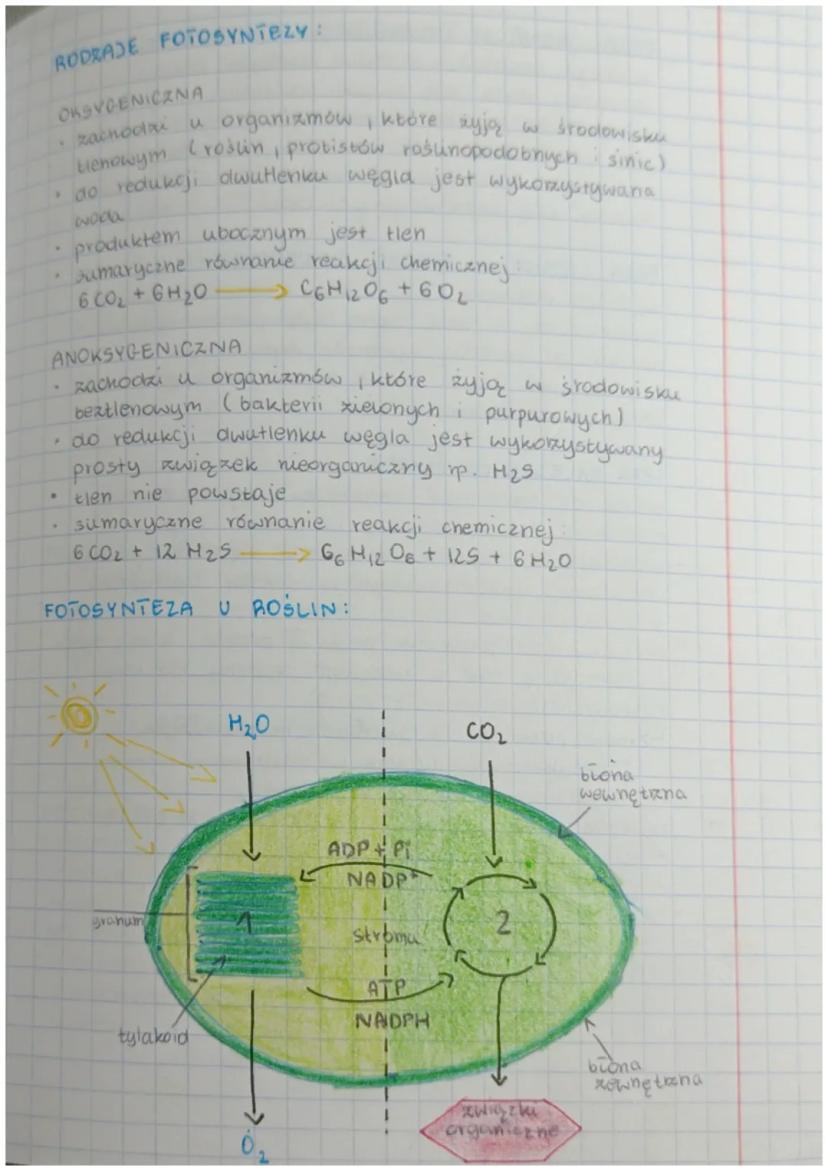 RODZAJE FOTOSYNTEZY:
OKSYGENICZNA
• zachodzi u organizmów, które żyją w środowisku
tlenowym (roślin, protistów roślinopodobnych i sinic)
• do redukcji dwutlenku węgla jest wykorzystywana
woda
• produktem ubocznym jest tlen
• sumaryczne równanie reakcji chemicznej:
6CO₂ + 6H₂O → C₆H₁₂O₆ + 6O₂
ANOKSYGENICZNA
• zachodzi u organizmów, które żyją w środowisku
beztlenowym (bakterii zielonych i purpurowych)
• do redukcji dwutlenku węgla jest wykorzystywany
prosty związek nieorganiczny np. H₂S
• tlen nie powstaje
• sumaryczne równanie reakcji chemicznej:
6CO₂ + 12H₂S → C₆H₁₂O₆ + 12S + 6H₂O
FOTOSYNTEZA U ROŚLIN:
H₂O
CO₂
błona
wewnętrzna
ADP + Pi
NADP⁺
granum
1
stroma
2
ATP
NADPH
tylakoid
błona
zewnętrzna
związki
organiczne
O₂